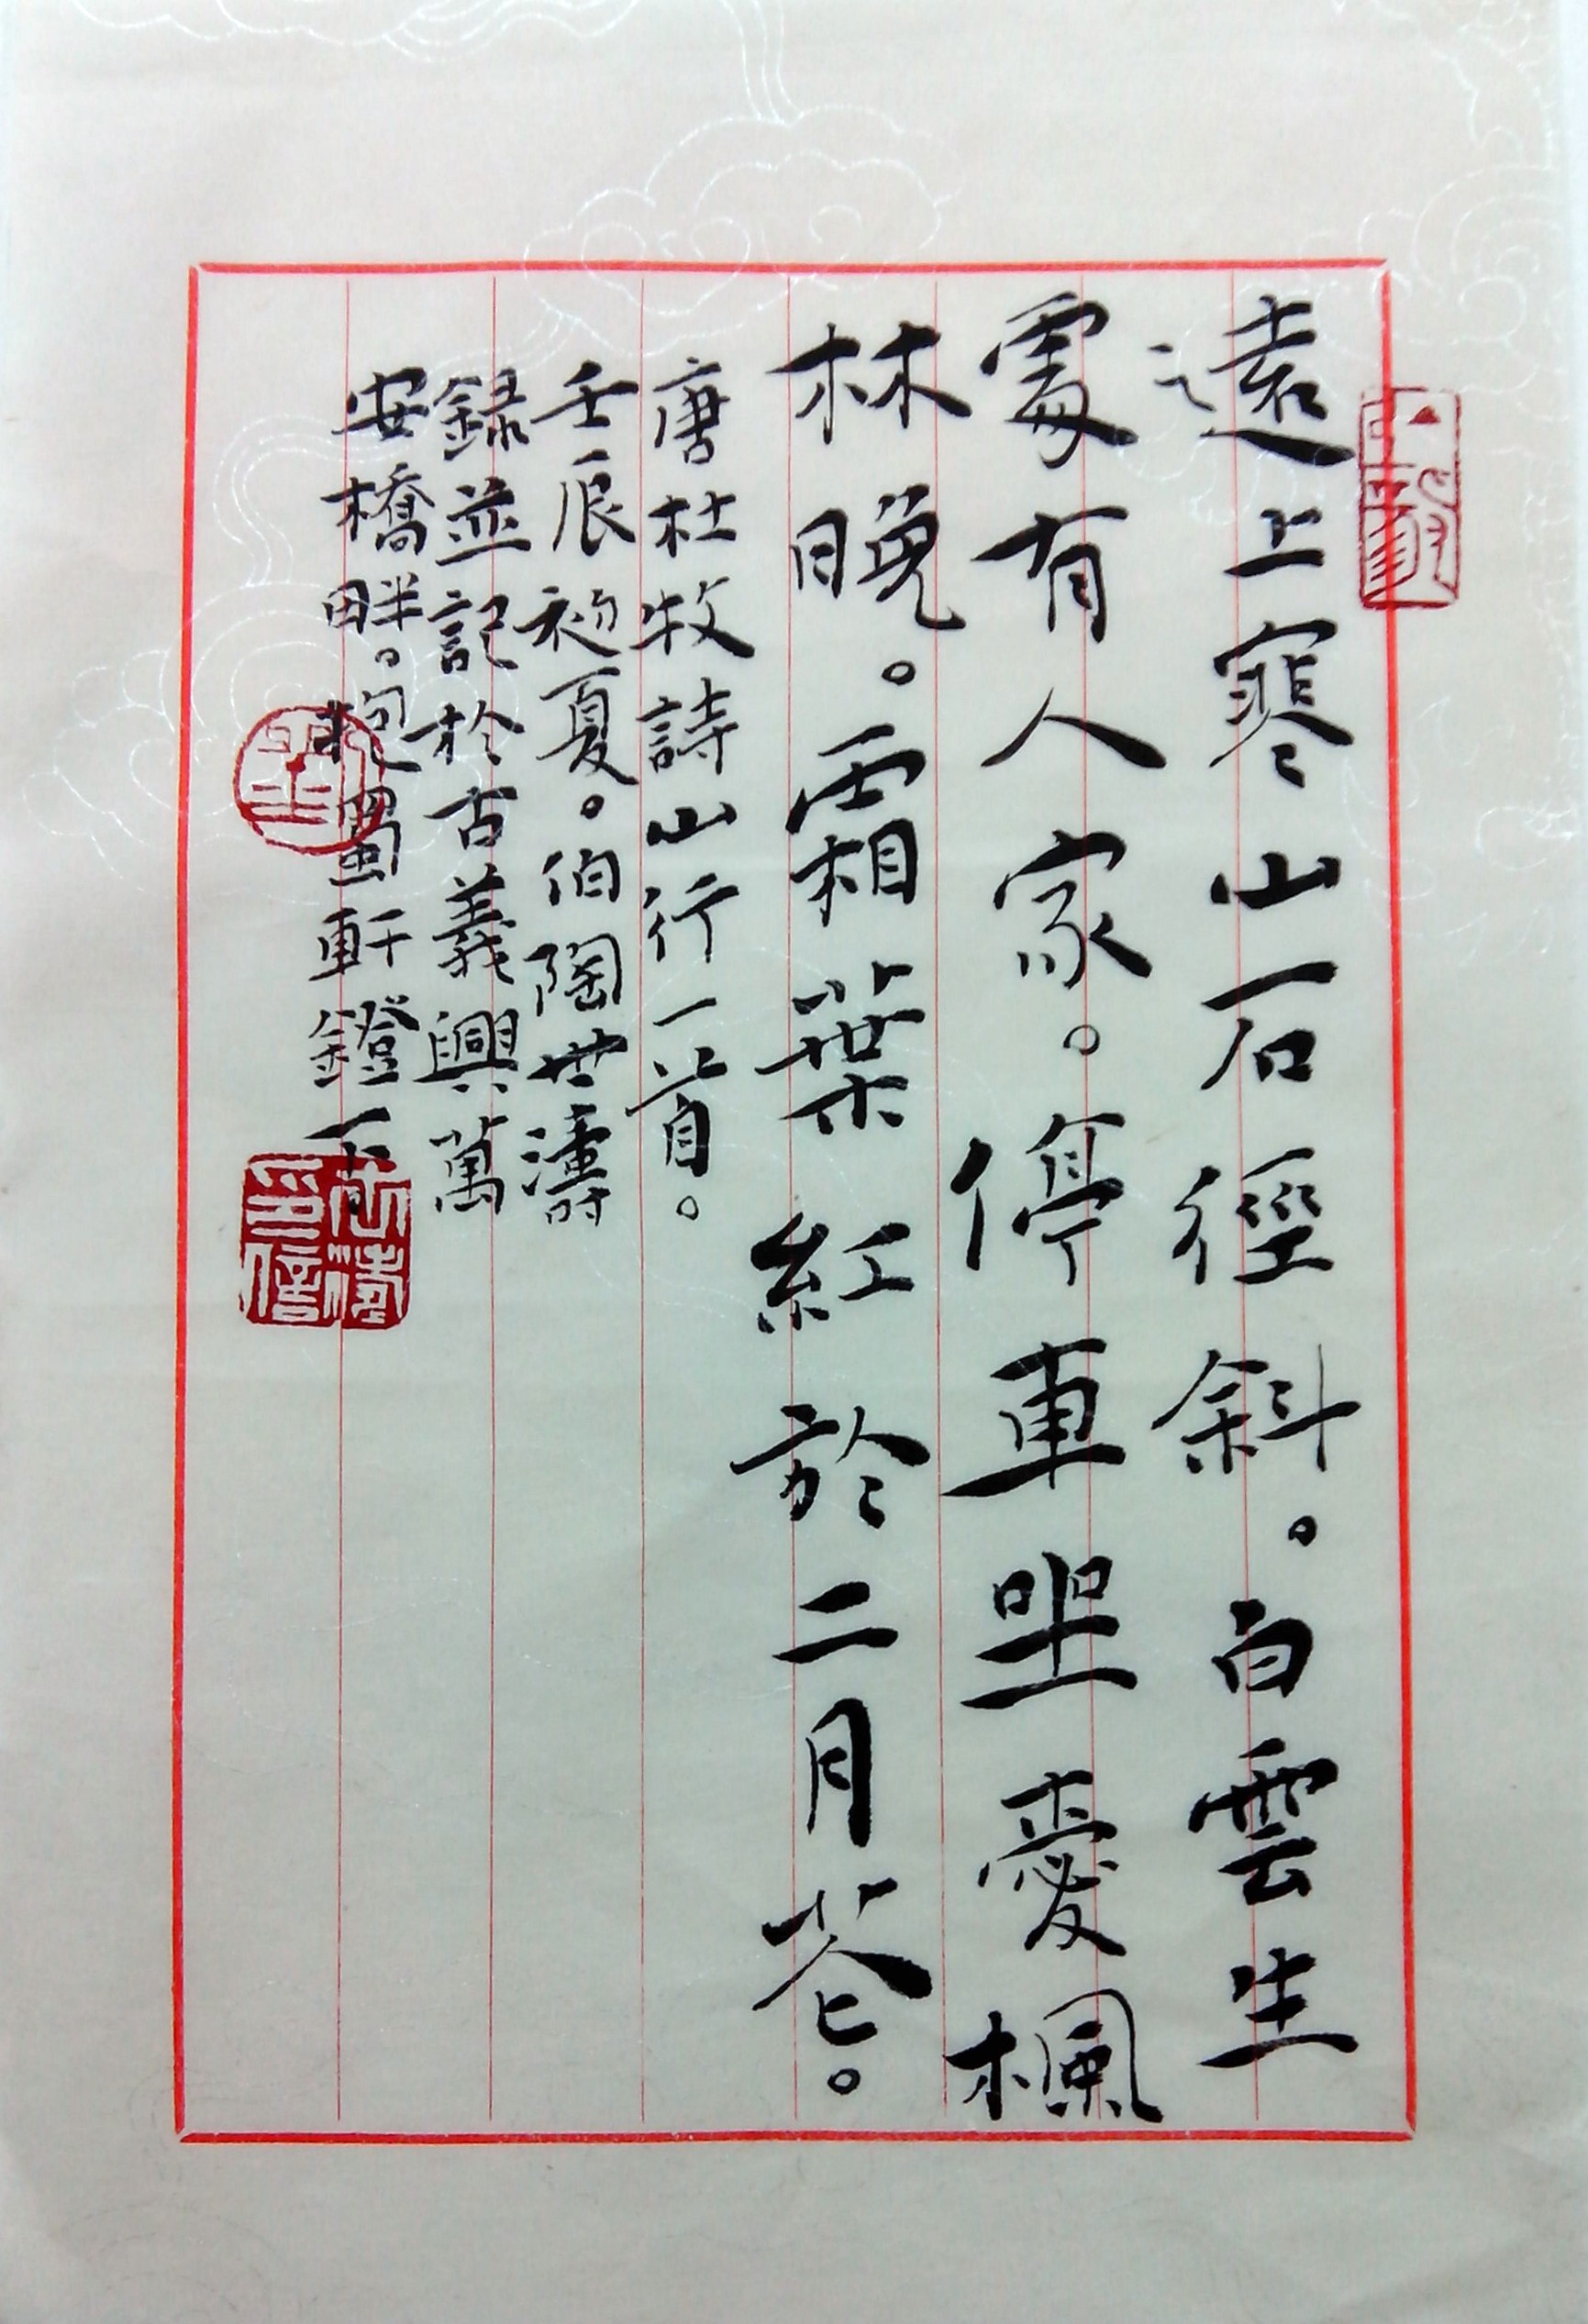 遠上寒山石徑斜。白雲生
處有人家。停車坐愛楓
林晚。霜葉紅於二月花。
唐杜牧詩山行一首。
壬辰初夏。伯陶世濤
錄並記於古義興萬
安橋畔。抱蜀軒鐙下
世濤印信